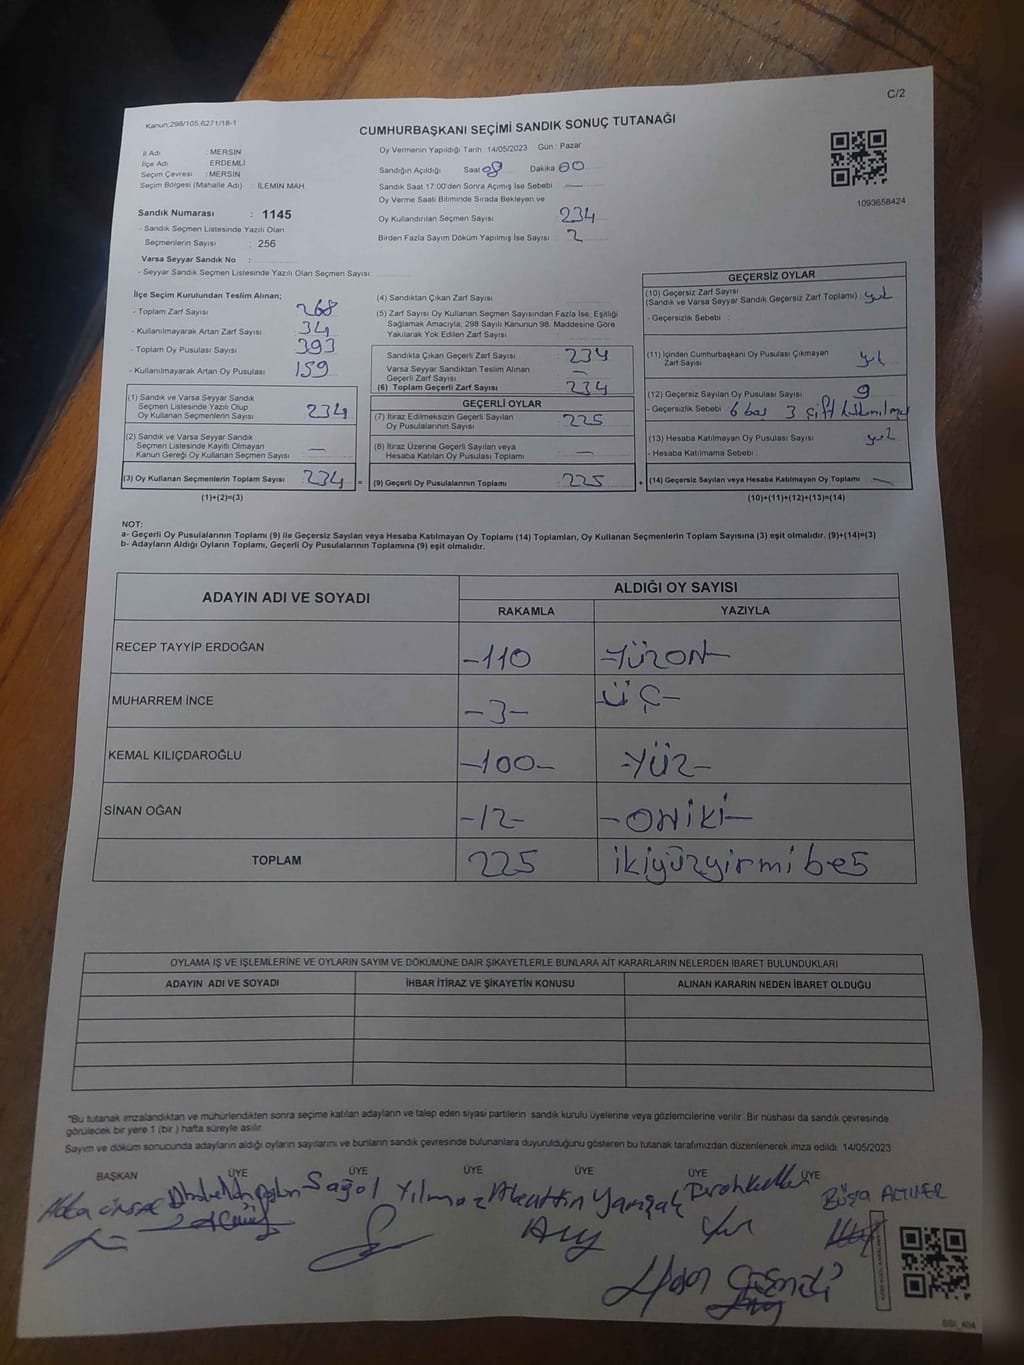 C/2
Kanun:298/105,6271/18-1
CUMHURBAŞKANI SEÇİMİ SANDIK SONUÇ TUTANAĞI
İl Adı : MERSİN
İlçe Adı : ERDEMLİ
Seçim Çevresi : MERSİN
Seçim Bölgesi (Mahalle Adı) : İLEMİN MAH.
Sandık Numarası : 1145
- Sandık Seçmen Listesinde Yazılı Olan
Seçmenlerin Sayısı : 256
Varsa Seyyar Sandık No :
- Seyyar Sandık Seçmen Listesinde Yazılı Olan Seçmen Sayısı:
Oy Vermenin Yapıldığı Tarih : 14/05/2023 Gün : Pazar
Sandığın Açıldığı Saat 08 Dakika 00
Sandık Saat 17:00'den Sonra Açımış İse Sebebi —
Oy Verme Saati Bitiminde Sırada Bekleyen ve
Oy Kullandırılan Seçmen Sayısı 234
Birden Fazla Sayım Döküm Yapılmış İse Sayısı : 2
1093658424
İlçe Seçim Kurulundan Teslim Alınan;
- Toplam Zarf Sayısı : 268
- Kullanılmayarak Artan Zarf Sayısı : 34
- Toplam Oy Pusulası Sayısı : 393
- Kullanılmayarak Artan Oy Pusulası : 159
(1) Sandık ve Varsa Seyyar Sandık
Seçmen Listesinde Yazılı Olup
Oy Kullanan Seçmenlerin Sayısı : 234
(2) Sandık ve Varsa Seyyar Sandık
Seçmen Listesinde Kayıtlı Olmayan
Kanun Gereği Oy Kullanan Seçmen Sayısı : —
(3) Oy Kullanan Seçmenlerin Toplam Sayısı : 234 =
(1)+(2)=(3)
(4) Sandıktan Çıkan Zarf Sayısı
(5) Zarf Sayısı Oy Kullanan Seçmen Sayısından Fazla İse, Eşitliği
Sağlamak Amacıyla, 298 Sayılı Kanunun 98. Maddesine Göre
Yakılarak Yok Edilen Zarf Sayısı :
Sandıkta Çıkan Geçerli Zarf Sayısı : 234
Varsa Seyyar Sandıktan Teslim Alınan
Geçerli Zarf Sayısı : —
(6) Toplam Geçerli Zarf Sayısı : 234
GEÇERLİ OYLAR
(7) İtiraz Edilmeksizin Geçerli Sayılan
Oy Pusulasının Sayısı : 225
(8) İtiraz Üzerine Geçerli Sayılan veya
Hesaba Katılan Oy Pusulası Toplamı : —
(9) Geçerli Oy Pusulalarının Toplamı : 225 +
GEÇERSİZ OYLAR
(10) Geçersiz Zarf Sayısı
(Sandık ve Varsa Seyyar Sandık Geçersiz Zarf Toplamı) : yok
- Geçersizlik Sebebi :
(11) İçinden Cumhurbaşkanı Oy Pusulası Çıkmayan
Zarf Sayısı : yok
(12) Geçersiz Sayılan Oy Pusulası Sayısı : 9
- Geçersizlik Sebebi : 6 boş 3 çift
(13) Hesaba Katılmayan Oy Pusulası Sayısı : yok
- Hesaba Katılmama Sebebi :
(14) Geçersiz Sayılan veya Hesaba Katılmayan Oy Toplamı : —
(10)+(11)+(12)+(13)=(14)
NOT:
a- Geçerli Oy Pusulalarının Toplamı (9) ile Geçersiz Sayılan veya Hesaba Katılmayan Oy Toplamı (14) Toplamları, Oy Kullanan Seçmenlerin Toplam Sayısına (3) eşit olmalıdır. (9)+(14)=(3)
b- Adayların Aldığı Oyların Toplamı, Geçerli Oy Pusulalarının Toplamına (9) eşit olmalıdır.
ADAYIN ADI VE SOYADI ALDIĞI OY SAYISI
RAKAMLA YAZIYLA
RECEP TAYYİP ERDOĞAN -110 -YÜZON-
MUHARREM İNCE -3- -ÜÇ-
KEMAL KILIÇDAROĞLU -100- -YÜZ-
SİNAN OĞAN -12- -ONİKİ-
TOPLAM 225 ikiyüzyirmibeş
OYLAMA İŞ VE İŞLEMLERİNE VE OYLARIN SAYIM VE DÖKÜMÜNE DAİR ŞİKAYETLERLE BUNLARA AİT KARARLARIN NELERDEN İBARET BULUNDUKLARI
ADAYIN ADI VE SOYADI İHBAR İTİRAZ VE ŞİKAYETİN KONUSU ALINAN KARARIN NEDEN İBARET OLDUĞU
*Bu tutanak imzalandıktan ve mühürlendikten sonra seçime katılan adayların ve talep eden siyasi partilerin sandık kurulu üyelerine veya gözlemcilerine verilir. Bir nüshası da sandık çevresinde
görülecek bir yere 1 (bir ) hafta süreyle asılır.
Sayım ve döküm sonucunda adayların aldığı oyların sayılarını ve bunların sandık çevresinde bulunanlara duyurulduğunu gösteren bu tutanak tarafımızdan düzenlenerek imza edildi. 14/05/2023
BAŞKAN ÜYE ÜYE ÜYE ÜYE ÜYE ÜYE
Yılmaz Büşra ALTINER